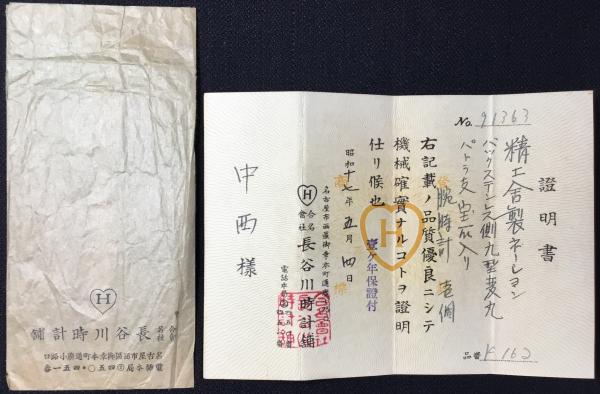 證明書
No. 91363
精工舎製ネーション
バックステンレス側九型変九
パトラ支宝石入リ
腕時計 壱個
右記載ノ品質優良ニシテ
機械確實ナルコトヲ證明
仕リ候也
壹ヶ年保證付
昭和十七年五月四日
名古屋市西區御幸本町通
H
合名會社 長谷川時計舖
中西様
品番 K162
H
合名會社 長谷川時計舖
名古屋市西區御幸本町通廣小路口
電話本局④四五〇・四五一番